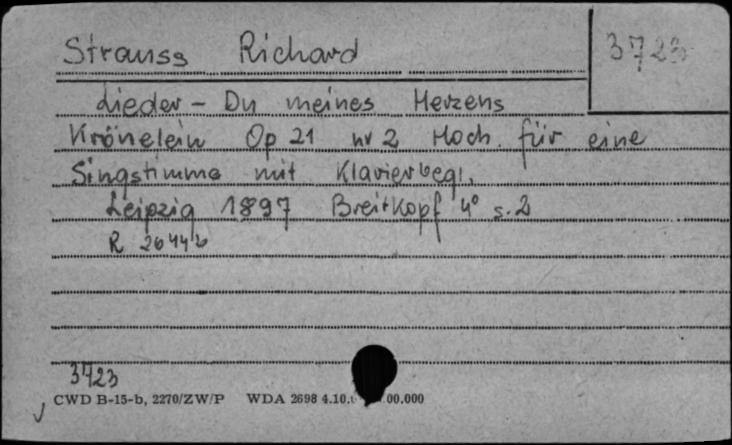 Strauss Richard
3723
Lieder - Du meines Herzens
Krönelein Op 21 nr 2 Hoch. für eine
Singstimme mit Klavierbegl.
Leipzig 1897 Breitkopf 4° s. 2
R 26442
3723
CWD B-15-b, 2270/ZW/P WDA 2698 4.10. 00.000